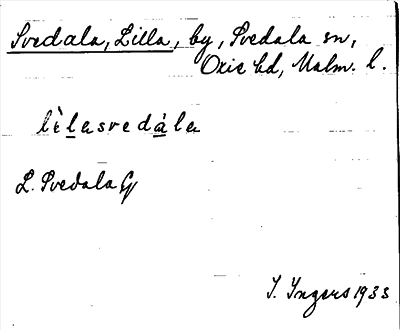 Svedala, Lilla, by, Svedala sn,
Oxie hd, Malm. l.
lìlasvedàla
L. Svedala G
I. Ingers 1933